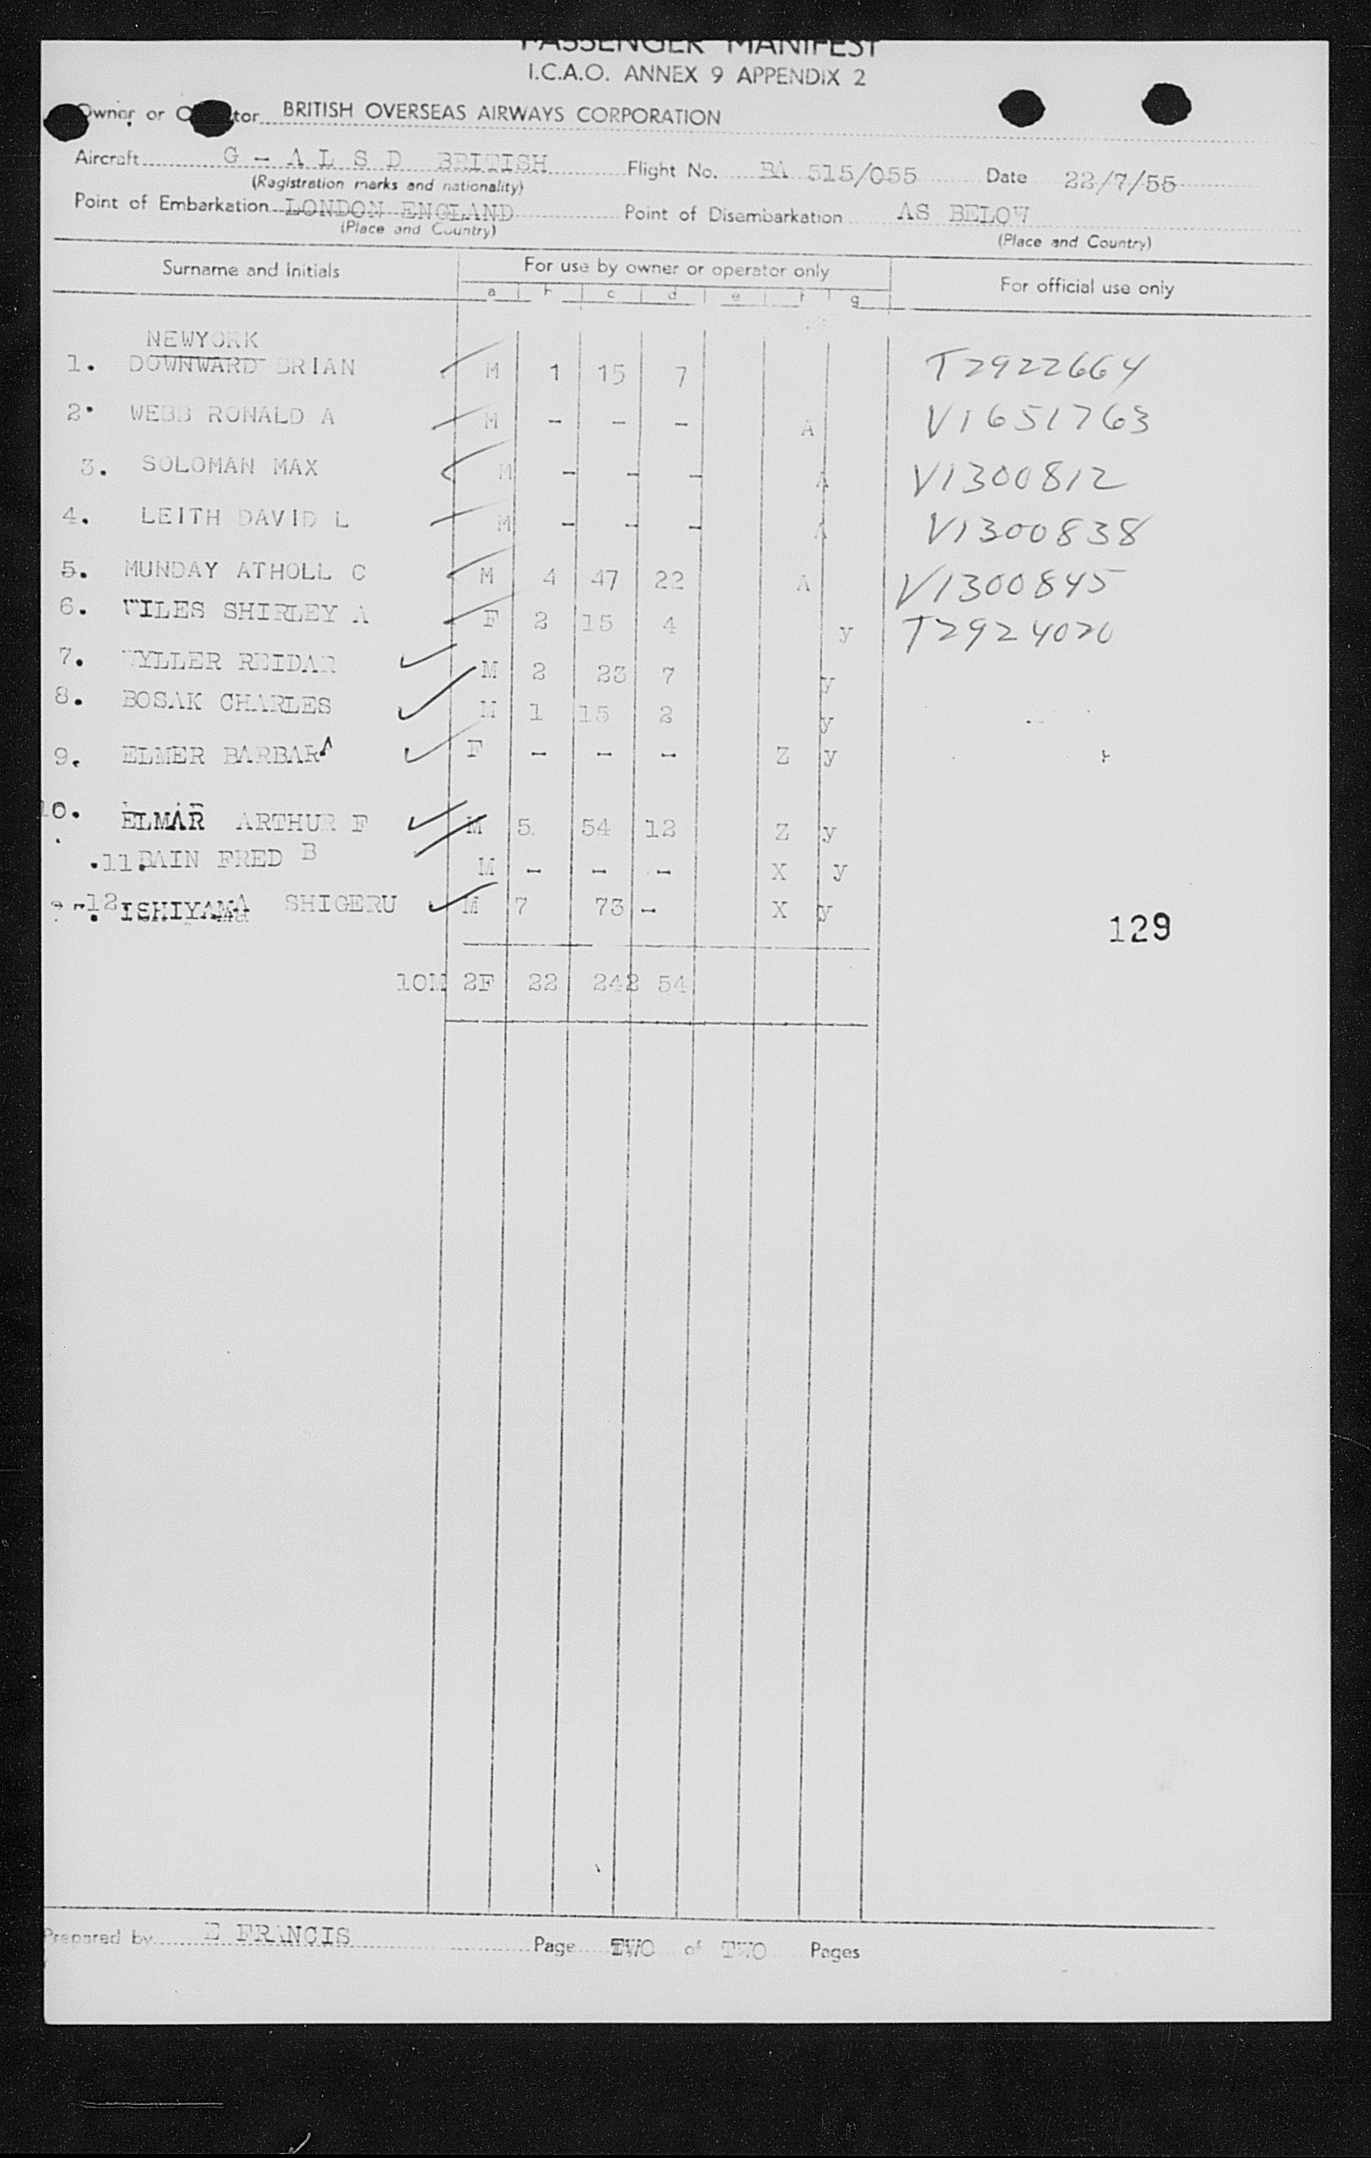 PASSENGER MANIFEST
I.C.A.O. ANNEX 9 APPENDIX 2
Owner or Operator BRITISH OVERSEAS AIRWAYS CORPORATION
Aircraft G - A L S D BRITISH Flight No. BA 515/055 Date 22/7/55
(Registration marks and nationality)
Point of Embarkation LONDON ENGLAND Point of Disembarkation AS BELOW
(Place and Country) (Place and Country)
Surname and Initials For use by owner or operator only For official use only
a b c d e f g
NEWYORK
1. DOWNWARD BRIAN M 1 15 7 T2922664
2. WEBB RONALD A M - - - A V1651763
3. SOLOMAN MAX M - - - A V1300812
4. LEITH DAVID L M - - - A V1300838
5. MUNDAY ATHOLL C M 4 47 22 A V1300845
6. WILES SHIRLEY A F 2 15 4 y T2924020
7. WYLLER REIDAR M 2 23 7 y
8. BOSAK CHARLES M 1 15 2 y
9. ELMER BARBARA F - - - Z y
10. ELMAR ARTHUR F M 5 54 12 Z y
11. BAIN FRED B M - - - X y
12. ISHIYAMA SHIGERU M 7 73 - X y
129
10M 2F 22 242 54
Prepared by E FRANCIS Page TWO of TWO Pages